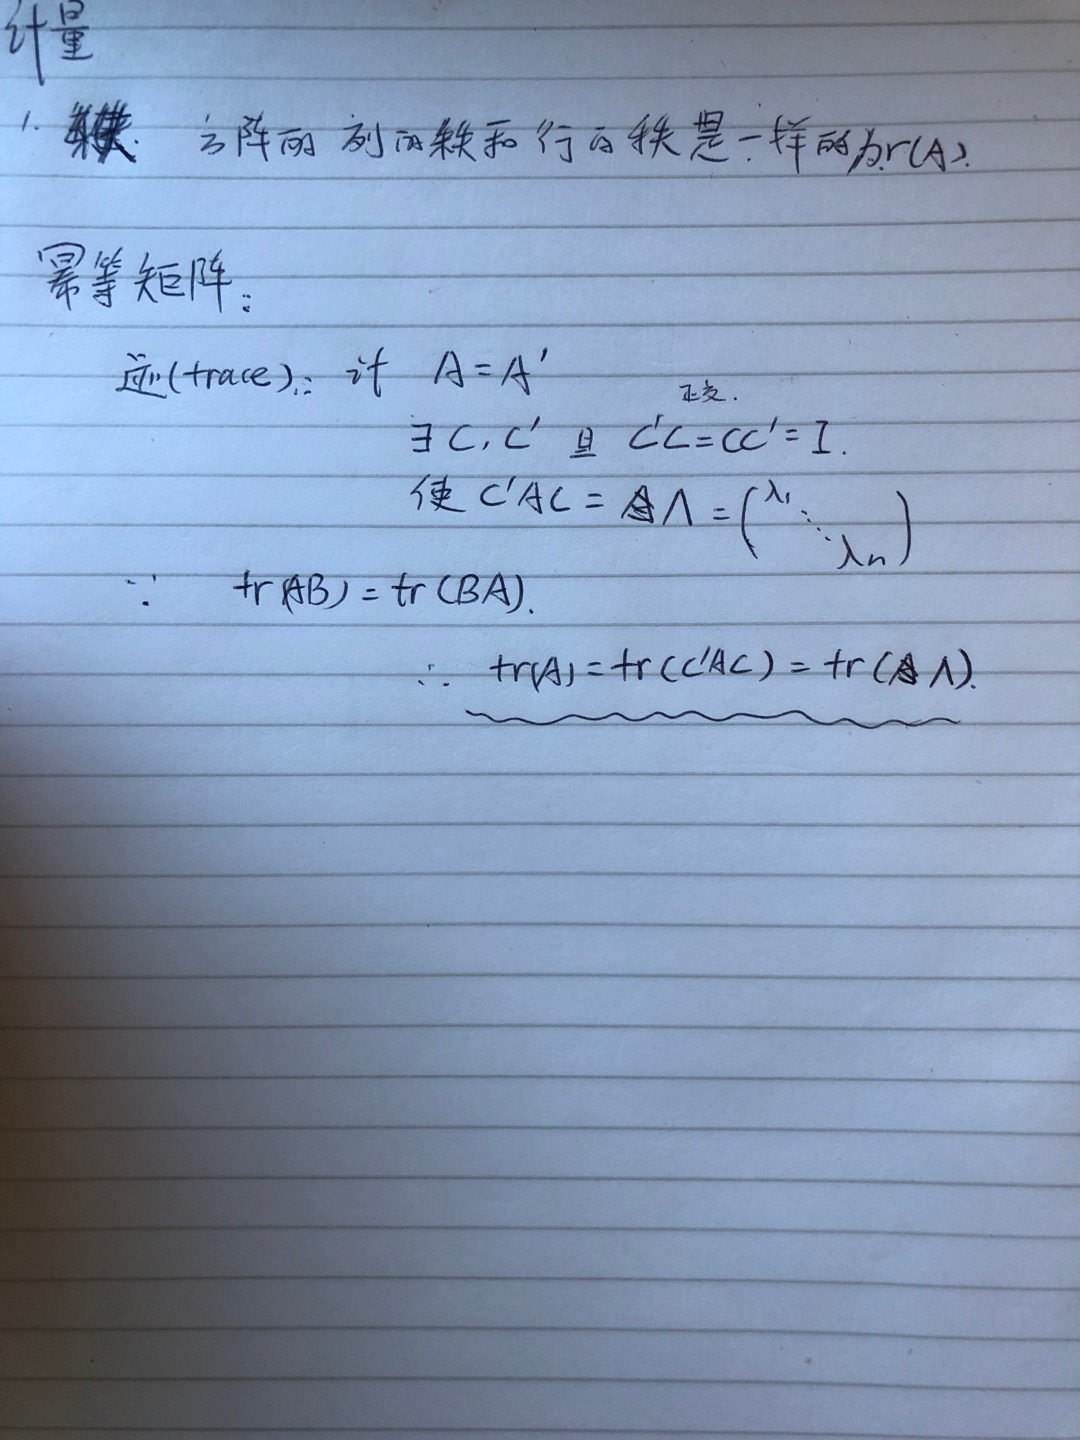 计量
1. 方阵的列的秩和行的秩是一样的为r(A).
幂等矩阵:
迹(trace): 计 A=A'
正交.
∃ C, C' 且 C'C=CC'=I.
使 C'AC = Λ = (λ₁ ⋱ λn)
∵ tr(AB) = tr(BA).
∴ tr(A) = tr(C'AC) = tr(Λ).